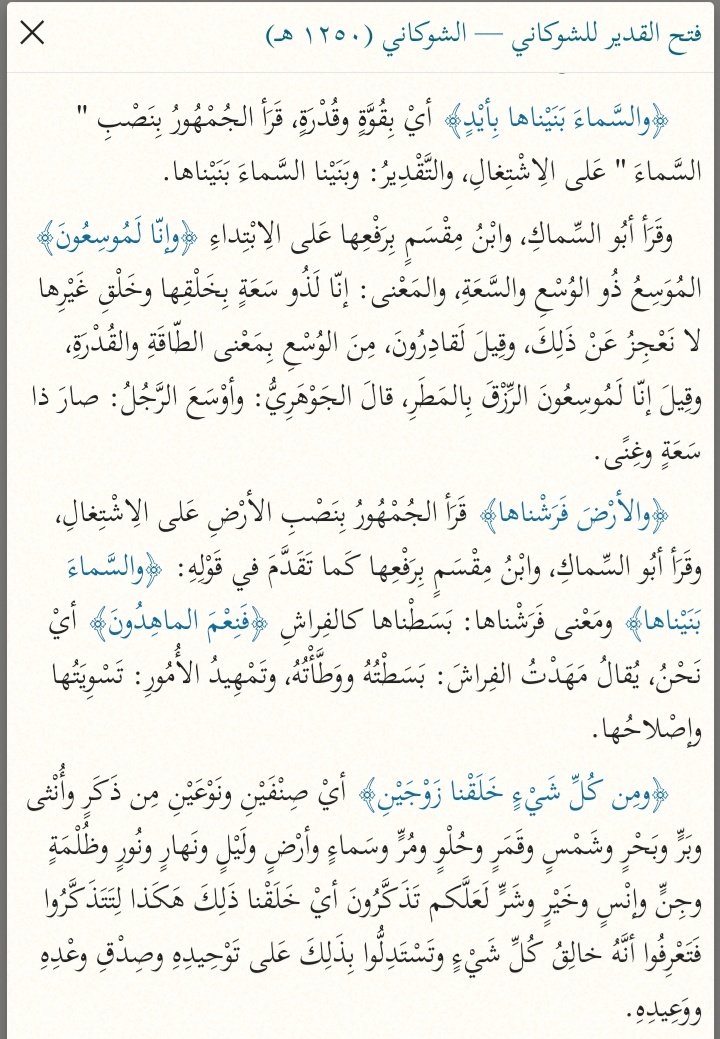 فتح القدير للشوكاني — الشوكاني (١٢٥٠ هـ)
﴿والسَّماءَ بَنَيْناها بِأيْدٍ﴾ أيْ بِقُوَّةٍ وقُدْرَةٍ، قَرَأ الجُمْهُورُ بِنَصْبِ "
السَّماءَ " عَلى الِاشْتِغالِ، والتَّقْدِيرُ: وبَنَيْنا السَّماءَ بَنَيْناها.
وقَرَأ أبُو السِّماكِ، وابْنُ مِقْسَمٍ بِرَفْعِها عَلى الِابْتِداءِ ﴿وإنّا لَمُوسِعُونَ﴾
المُوَسِعُ ذُو الوُسْعِ والسَّعَةِ، والمَعْنى: إنّا لَذُو سَعَةٍ بِخَلْقِها وخَلْقِ غَيْرِها
لا نَعْجِزُ عَنْ ذَلِكَ، وقِيلَ لَقادِرُونَ، مِنَ الوُسْعِ بِمَعْنى الطّاقَةِ والقُدْرَةِ،
وقِيلَ إنّا لَمُوسِعُونَ الرِّزْقَ بِالمَطَرِ، قالَ الجَوْهَرِيُّ: وأوْسَعَ الرَّجُلُ: صارَ ذا
سَعَةٍ وغِنًى.
﴿والأرْضَ فَرَشْناها﴾ قَرَأ الجُمْهُورُ بِنَصْبِ الأرْضِ عَلى الِاشْتِغالِ،
وقَرَأ أبُو السِّماكِ، وابْنُ مِقْسَمٍ بِرَفْعِها كَما تَقَدَّمَ في قَوْلِهِ: ﴿والسَّماءَ
بَنَيْناها﴾ ومَعْنى فَرَشْناها: بَسَطْناها كالفِراشِ ﴿فَنِعْمَ الماهِدُونَ﴾ أيْ
نَحْنُ، يُقالُ مَهَدْتُ الفِراشَ: بَسَطْتُهُ ووَطَّأْتُهُ، وتَمْهِيدُ الأُمُورِ: تَسْوِيَتُها
وإصْلاحُها.
﴿ومِن كُلِّ شَيْءٍ خَلَقْنا زَوْجَيْنِ﴾ أيْ صِنْفَيْنِ ونَوْعَيْنِ مِن ذَكَرٍ وأُنْثى
وبَرٍّ وبَحْرٍ وشَمْسٍ وقَمَرٍ وحُلْوٍ ومُرٍّ وسَماءٍ وأرْضٍ ولَيْلٍ ونَهارٍ ونُورٍ وظُلْمَةٍ
وجِنٍّ وإنْسٍ وخَيْرٍ وشَرٍّ لَعَلَّكم تَذَكَّرُونَ أيْ خَلَقْنا ذَلِكَ هَكَذا لِتَتَذَكَّرُوا
فَتَعْرِفُوا أنَّهُ خالِقُ كُلِّ شَيْءٍ وتَسْتَدِلُّوا بِذَلِكَ عَلى تَوْحِيدِهِ وصِدْقِ وعْدِهِ
ووَعِيدِهِ.